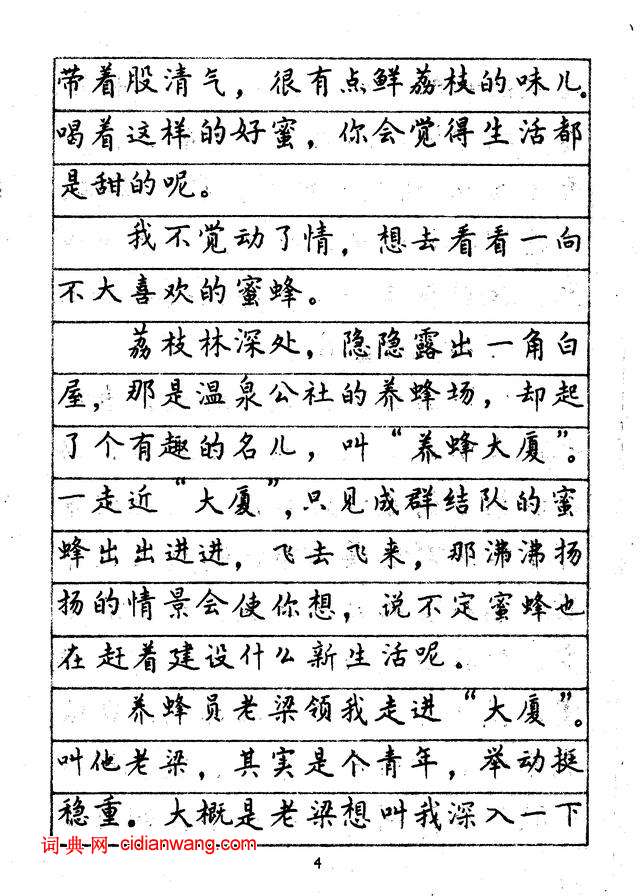 带着股清气，很有点鲜荔枝的味儿。
喝着这样的好蜜，你会觉得生活都
是甜的呢。
我不觉动了情，想去看看一向
不大喜欢的蜜蜂。
荔枝林深处，隐隐露出一角白
屋，那是温泉公社的养蜂场，却起
了个有趣的名儿，叫“养蜂大厦”。
一走近“大厦”，只见成群结队的蜜
蜂出出进进，飞去飞来，那沸沸扬
扬的情景会使你想，说不定蜜蜂也
在赶着建设什么新生活呢。
养蜂员老梁领我走进“大厦”。
叫他老梁，其实是个青年，举动挺
稳重。大概是老梁想叫我深入一下
词·典·网·cidianwang.com
4